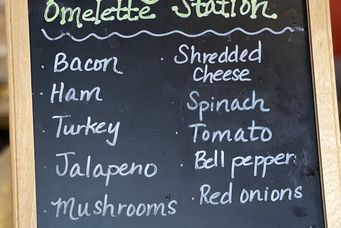 Omelette Station
· Bacon
· Ham
· Turkey
· Jalapeno
· Mushrooms
· Shredded
Cheese
· Spinach
· Tomato
· Bell pepper
· Red onions